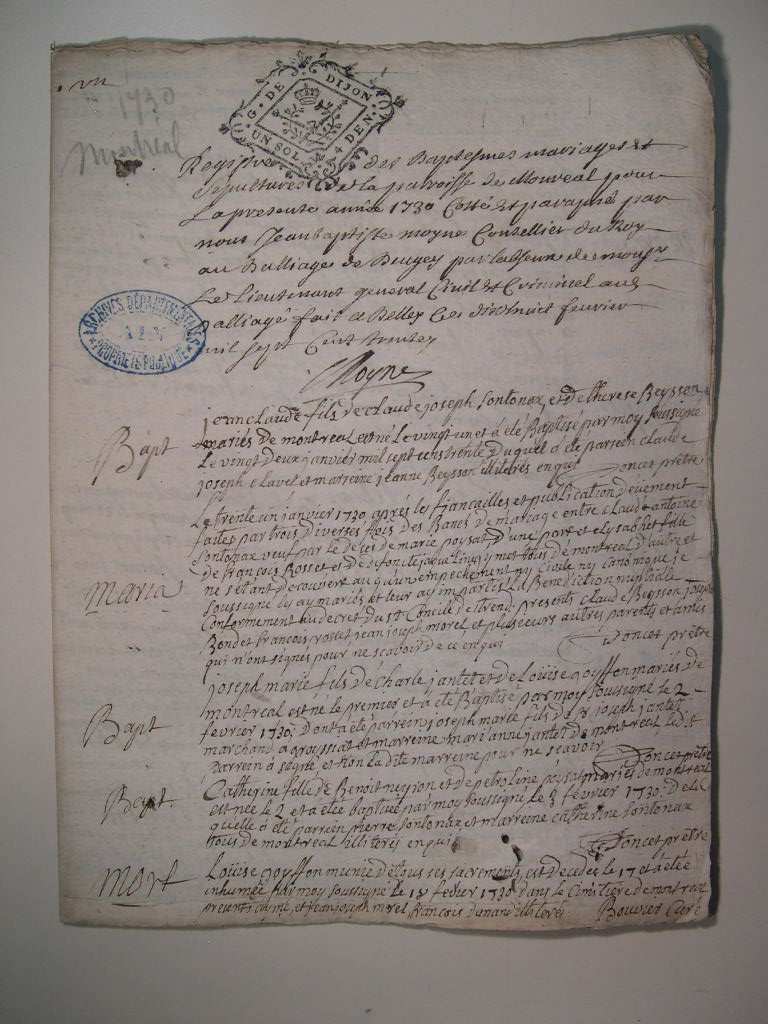 1730
Montreal
G. DE DIJON
UN SOL 4 DEN.
Registre des Baptesmes mariages et
sepultures de la paroisse de Monreal pour
La presente année 1730 Cotté et paraphé par
nous Jeanbaptiste moyne Conseillier du Roy
au Balliage de Beugey par labsence de monsr
Le Lieutenant general Civil et Criminel aud
Balliage fait a Belley Ce dixhuit feuvrier
mil sept Cent trente
Moyne
ARCHIVES DÉPARTEMENTALES
PROPRIÉTÉ PUBLIQUE
Bapt
jean claude fils de claude joseph Sontonax, et de therese Beysson
mariés de montreal est né le vingt un et a été Baptisé par moy soussigné
Le vingt deux janvier mil sept cens trente duquel a été parrein claude
joseph clavel et marreine jeanne Beysson illiterés enquis
Doncet prêtre
Maria
Le trente un janvier 1730 aprés les fiançailles et publication dêvement
faites par trois diverses fois des Bancs de mariage entre claude antoine
Sontonax veuf par le decés de marie poysat d'une part et elysabhet fille
de francois Rosset et de defonte tous de montreal d'autre et
ne s'étant decouvert aucun empechement ny Civile ny Canonique je
soussigné les ay mariés et leur ay imparti La Benediction nuptiale
Conformement au decret du st Concile de trente presents claude Beysson joseph
Bondet francois rosset jean joseph morel et plusieurs autres parents et amis
qui n'ont signés pour ne scavoir de ce enquis
Doncet prêtre
Bapt
joseph marie fils de Charle jantet et de Louise goyffon mariés de
montreal est né le premier et a été Baptisé par moy soussigné le 2
fevrier 1730, dont a été parrein joseph marie fils de sr joseph jantet
marchand a groissiat et marreine marianne jantet de montreal ledit
parrein a signé et non la dite marreine pour ne scavoir
Doncet prêtre
Bapt
Catherine fille de Benoit neyron et de petroline poysat mariés de montreal
est née le 2 et a été baptisée par moy soussigné le 3 fevrier 1730. de la
quelle a été parrein pierre Sontonax et marreine catherine Sontonax
tous de montreal illiterés enquis
Doncet prêtre
Mort
Louise goyffon munie de tous ses sacrements, est decedée le 17 et a été
inhumée par moy soussigné le 18 fevrier 1730 dans le Cimetiere de montreal
presents jean joseph morel francois dunand illiterés Bouvier Curé